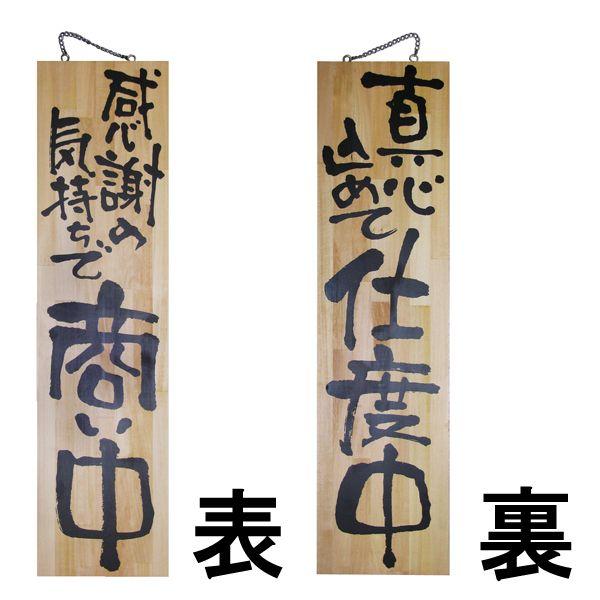 感謝の
気持ちで
商い中
表
真心
込めて
仕度中
裏